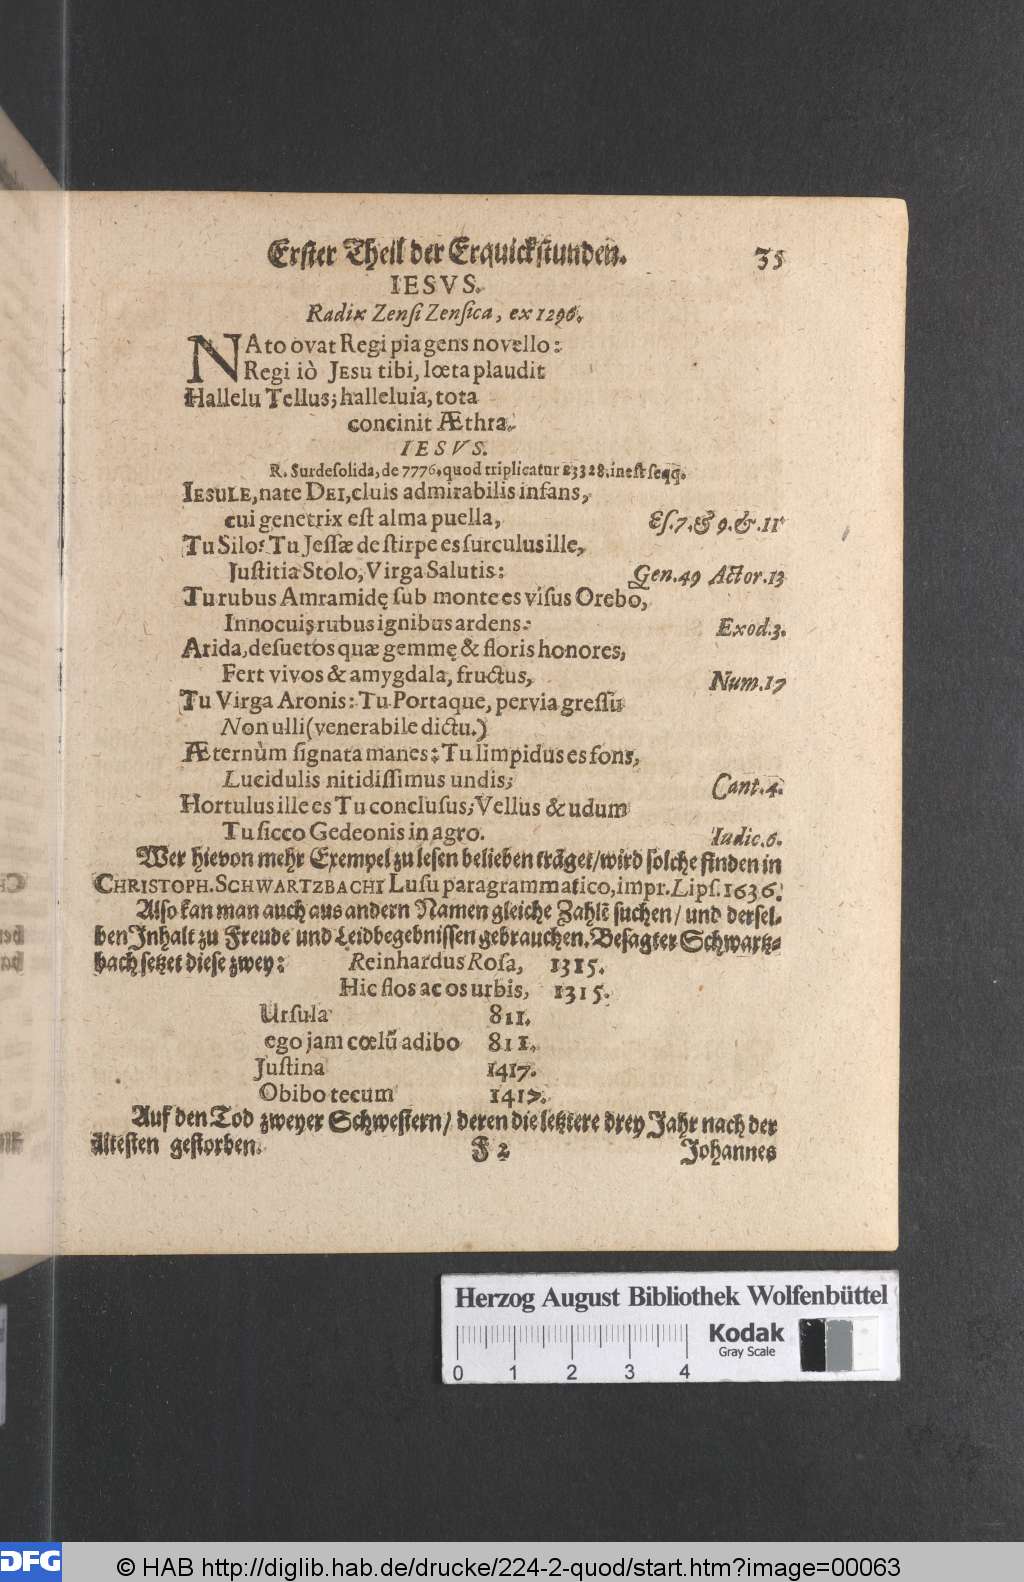 Erster Theil der Erquickstunden. 35
IESVS.
Radix Zensi Zensica, ex 1296.
NAto ovat Regi pia gens novello:
Regi iò JESU tibi, lœta plaudit
Hallelu Tellus; halleluia, tota
concinit Æthra.
IESVS.
R. Surdesolida, de 7776. quod triplicatur 23328. inest seqq.
IESULE, nate DEI, cluis admirabilis infans,
cui genetrix est alma puella, Es. 7. & 9. & 11
Tu Silo: Tu Jessæ de stirpe es surculus ille,
Justitia Stolo, Virga Salutis: Gen. 49 Actor. 13
Tu rubus Amramidę sub monte es visus Orebo,
Innocuis rubus ignibus ardens: Exod. 3.
Arida, desuetos quæ gemmę & floris honores,
Fert vivos & amygdala, fructus, Num. 17
Tu Virga Aronis: Tu Portaque, pervia gressu
Non ulli (venerabile dictu.)
Æternùm signata manes: Tu limpidus es fons,
Lucidulis nitidissimus undis; Cant. 4.
Hortulus ille es Tu conclusus; Vellus & udum
Tu sicco Gedeonis in agro. Iudic. 6.
Wer hievon mehr Exempel zu lesen belieben träget/ wird solche finden in
CHRISTOPH. SCHWARTZBACHI Lusu paragrammatico, impr. Lips. 1636.
Also kan man auch aus andern Namen gleiche Zahlē suchen/ und dersel-
ben Inhalt zu Freude und Leidbegebnissen gebrauchen. Besagter Schwartz-
bach setzet diese zwey: Reinhardus Rosa, 1315.
Hic flos ac os urbis, 1315.
Ursula 811.
ego jam cœlū adibo 811.
Justina 1417.
Obibo tecum 1417.
Auf den Tod zweyer Schwestern/ deren die letztere drey Jahr nach der
ältesten gestorben.
F 2 Johannes
Herzog August Bibliothek Wolfenbüttel
Kodak
Gray Scale
0 1 2 3 4
DFG © HAB http://diglib.hab.de/drucke/224-2-quod/start.htm?image=00063